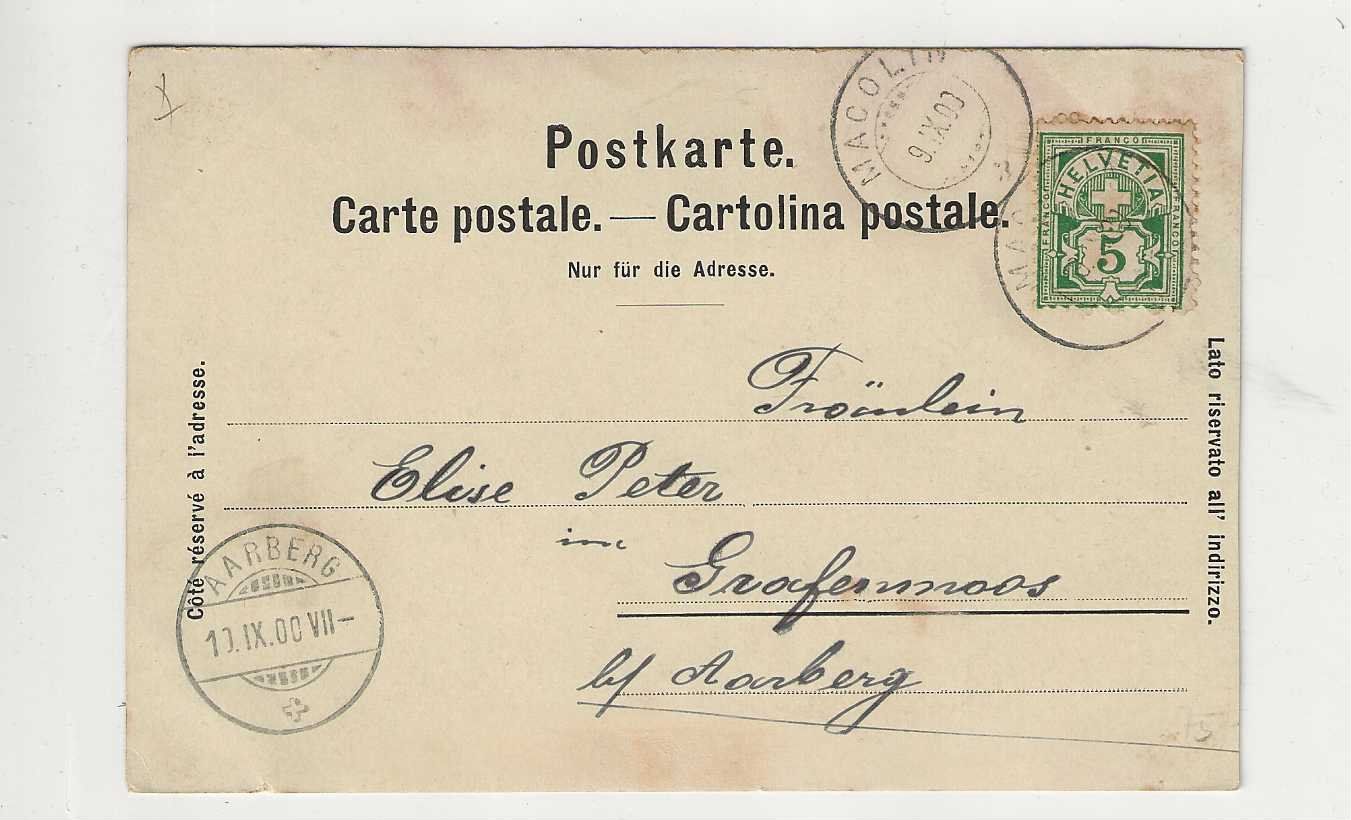 Postkarte.
Carte postale. — Cartolina postale.
Nur für die Adresse.
MACOLIN
9.IX.00
FRANCO
FRANCO
FRANCO
HELVETIA
5
MA
Côté réservé à l'adresse.
Lato riservato all' indirizzo.
Fräulein
Elise Peter
im
Grafenmoos
b/ Aarberg
AARBERG
10.IX.00 VII–
75